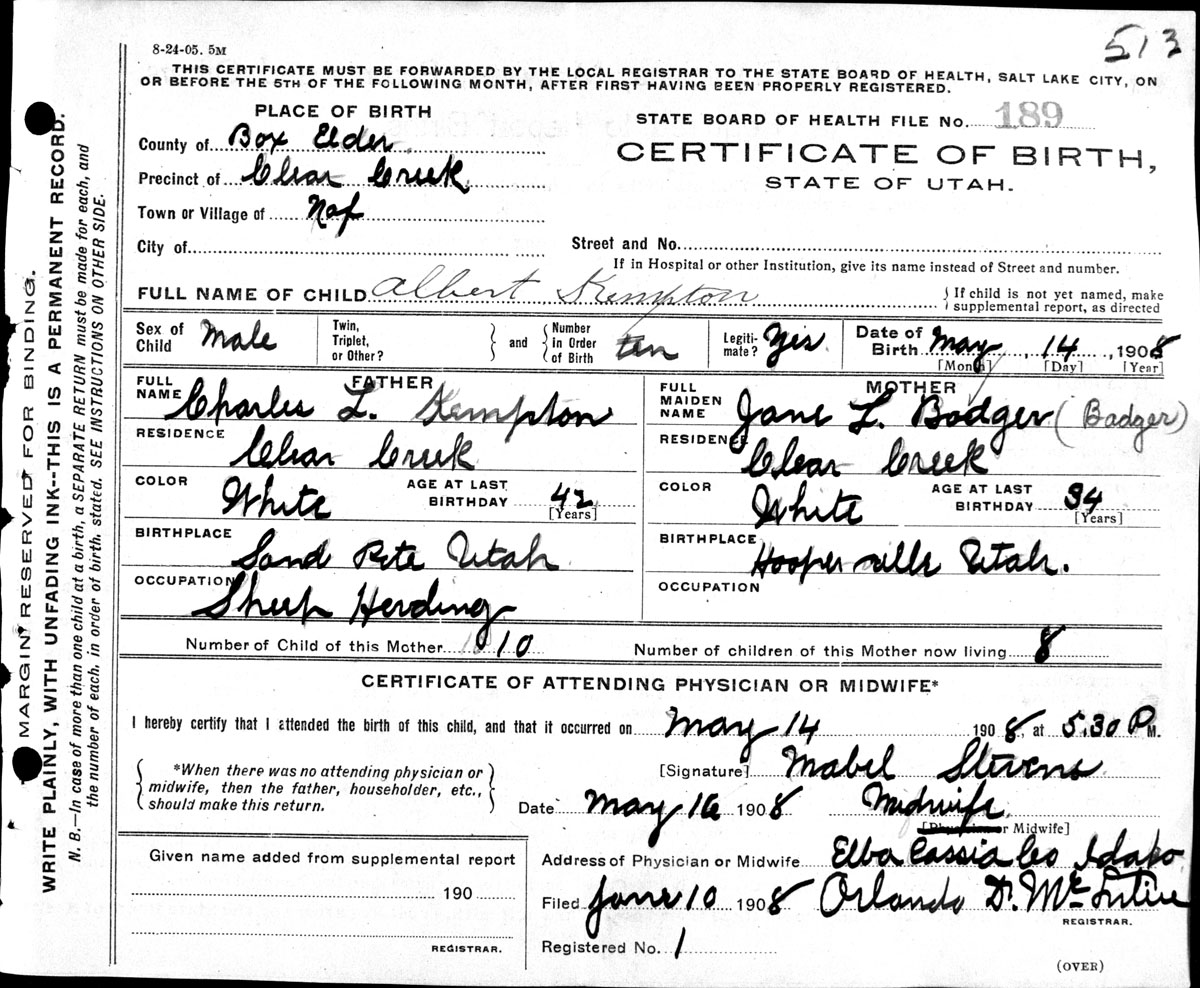 513
8-24-05. 5M
THIS CERTIFICATE MUST BE FORWARDED BY THE LOCAL REGISTRAR TO THE STATE BOARD OF HEALTH, SALT LAKE CITY, ON
OR BEFORE THE 5TH OF THE FOLLOWING MONTH, AFTER FIRST HAVING BEEN PROPERLY REGISTERED.
PLACE OF BIRTH
STATE BOARD OF HEALTH FILE No. 189
County of Box Elder
CERTIFICATE OF BIRTH,
Precinct of Clear Creek
STATE OF UTAH.
Town or Village of Naf
City of
Street and No.
If in Hospital or other Institution, give its name instead of Street and number.
FULL NAME OF CHILD Albert Kempton
If child is not yet named, make
supplemental report, as directed
Sex of Child Male
Twin, Triplet, or Other?
and
Number in Order of Birth ten
Legitimate? Yes
Date of Birth May 14, 1908
[Month] [Day] [Year]
FATHER
FULL NAME Charles L. Kempton
MOTHER
FULL MAIDEN NAME Jane L. Bodger (Badger)
RESIDENCE Clear Creek
RESIDENCE Clear Creek
COLOR White
AGE AT LAST BIRTHDAY 42
[Years]
COLOR White
AGE AT LAST BIRTHDAY 34
[Years]
BIRTHPLACE Sand Pete Utah
BIRTHPLACE Hooperville Utah.
OCCUPATION Sheep Herding
OCCUPATION
Number of Child of this Mother 10
Number of children of this Mother now living 8
CERTIFICATE OF ATTENDING PHYSICIAN OR MIDWIFE*
I hereby certify that I attended the birth of this child, and that it occurred on May 14 1908, at 5.30 P M.
*When there was no attending physician or
midwife, then the father, householder, etc.,
should make this return.
[Signature] Mabel Stevens
Date May 16 1908 Midwife
[Physician or Midwife]
Given name added from supplemental report
190
REGISTRAR.
Address of Physician or Midwife Elba Cassia Co Idaho
Filed June 10 1908 Orlando D. McIntire
REGISTRAR.
Registered No. 1
(OVER)
MARGIN RESERVED FOR BINDING.
WRITE PLAINLY, WITH UNFADING INK--THIS IS A PERMANENT RECORD.
N. B.—In case of more than one child at a birth, a SEPARATE RETURN must be made for each, and
the number of each, in order of birth, stated. SEE INSTRUCTIONS ON OTHER SIDE.